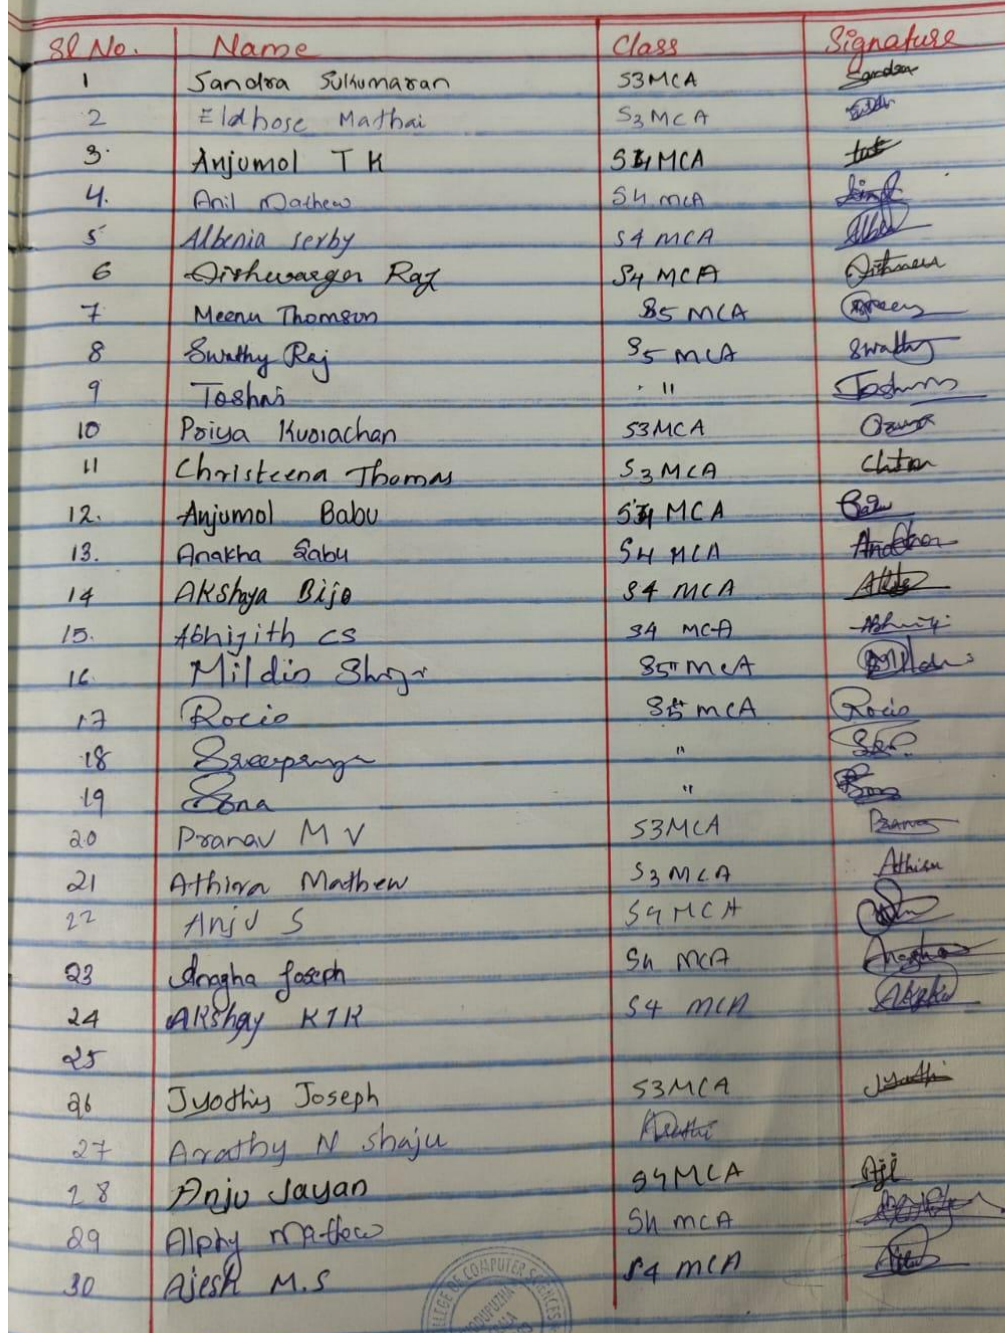 Sl No. Name Class Signature
1 Sandra Sukumaran S3MCA Sandra
2 Eldhose Mathai S3 MCA
3. Anjumol T K S4 MCA
4. Anil Mathew S4 MCA
5 Albenia Jerby S4 MCA
6 Aishwarya Raj S4 MCA
7 Meenu Thomson S5 MCA
8 Swathy Raj S5 MCA Swathy
9 Toshni "
10 Priya Kuriachan S3MCA
11 Christeena Thomas S3MCA
12. Anjumol Babu S4 MCA
13. Anakha Sabu S4 MCA
14 Akshaya Bijo S4 MCA
15. Abhijith CS S4 MCA
16. Mildin Shaji S5 MCA
17 Rocio S5 MCA Rocio
18 Sreepriya "
19 Sona "
20 Pranav M V S3MCA
21 Athira Mathew S3MCA Athira
22 Anju S S4 MCA
23 Anagha Joseph S4 MCA
24 Akshay K S4 MCA
25
26 Jyothis Joseph S3MCA Jyothi
27 Arathy N Shaju
28 Anju Jayan S4MCA
29 Alphy Mathew S4 MCA
30 Ajesh M.S S4 MCA
OF COMPUTER SCIENCES